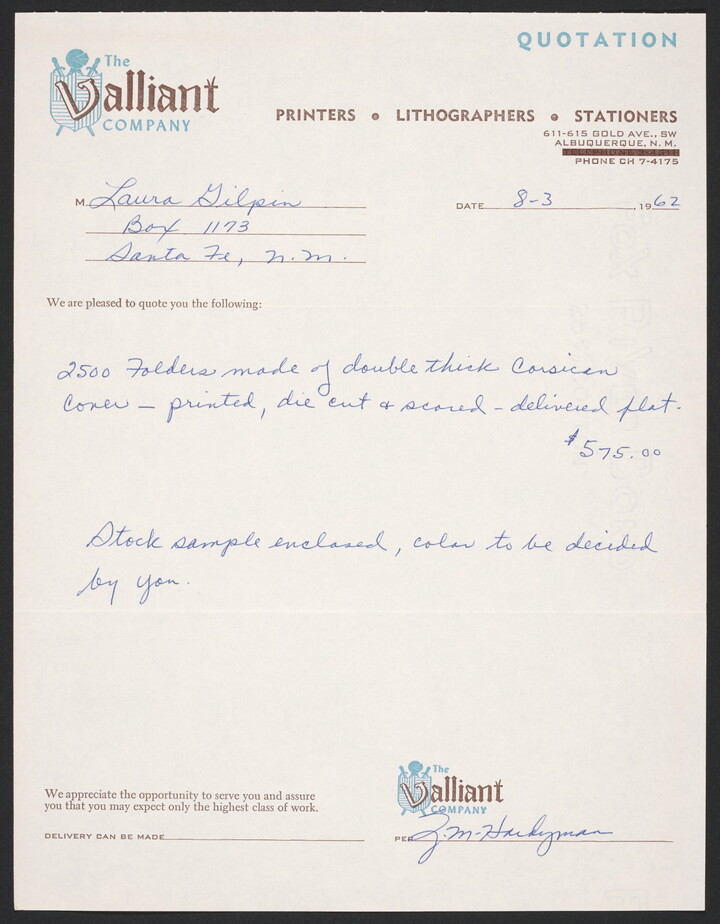 QUOTATION
The
Valliant
COMPANY
PRINTERS • LITHOGRAPHERS • STATIONERS
611-615 GOLD AVE., SW
ALBUQUERQUE, N. M.
PHONE CH 7-4175
M. Laura Gilpin
Box 1173
Santa Fe, N.M.
DATE 8-3 1962
We are pleased to quote you the following:
2500 Folders made of double thick Corsican
Cover - printed, die cut & scored - delivered flat.
$575.00
Stock sample enclosed, color to be decided
by you.
We appreciate the opportunity to serve you and assure
you that you may expect only the highest class of work.
DELIVERY CAN BE MADE
The
Valliant
COMPANY
PER Z.M. Hardyman